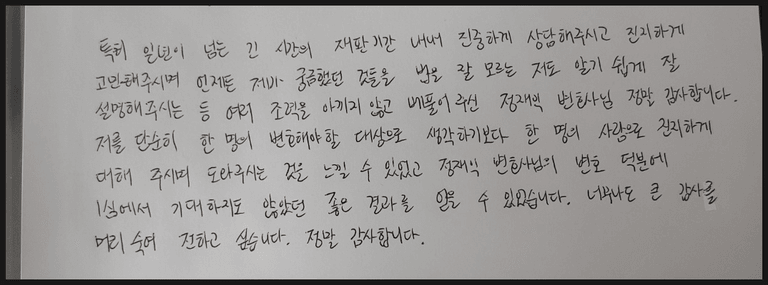 특히 일년이 넘는 긴 시간의 재판기간 내내 진중하게 상담해주시고 진지하게
고민해주시며 언제든 제가 궁금했던 것들을 법을 잘 모르는 저도 알기 쉽게 잘
설명해주시는 등 여러 조력을 아끼지 않고 베풀어주신 정재익 변호사님 정말 감사합니다.
저를 단순히 한 명의 변호해야할 대상으로 생각하기보다 한 명의 사람으로 진지하게
대해 주시며 도와주시는 것을 느낄 수 있었고 정재익 변호사님의 변호 덕분에
1심에서 기대하지도 않았던 좋은 결과를 얻을 수 있었습니다. 너무나도 큰 감사를
머리 숙여 전하고 싶습니다. 정말 감사합니다.